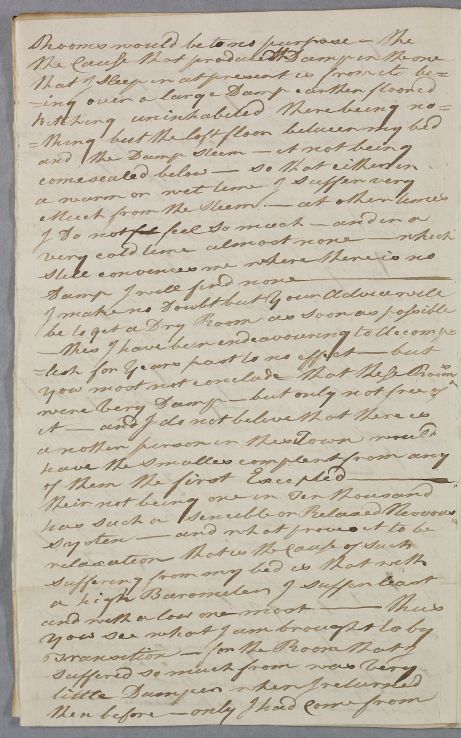 Rooms would be to no purpose — the
the Cause that produced the Damp in the one
that I Sleep in at present is from its be=
=ing over a large Damp earthen floored
kitching uninhabeted there being no=
=thing but the loft floor between my bed
and the Damp Steem — it not being
come sealed below — so that either in
a warm or wet time I Suffer very
Much from the Steem — at other times
I Do not feel so much — and in a
very cold time almost none — which
still convinces me where there is no
Damp I will find none —
I make no Doubt but your advice will
be to get a Dry Room as soon as possible
— this I have been endeavouring to Accomp=
=lish for years past to no effect — but
you most not conclude — that these Rooms
were Very Damp — but only not free of
it — and I do not belive that there is
a nother person in this Town would
have the Smalles complent from any
of them the first Excepted —
their not being one in Ten thousand
has such a sencible or Relaxed Nervous
System — and what proves it to be
relaxation that is the Cause of such
suffering from my bed is that with
a high Barometer I suffer least
and with a low one most — thus
you see what I am brought to by
Transition — for the Room that I
suffered so much from was very
little Damper when I returned
then before — only I had come from